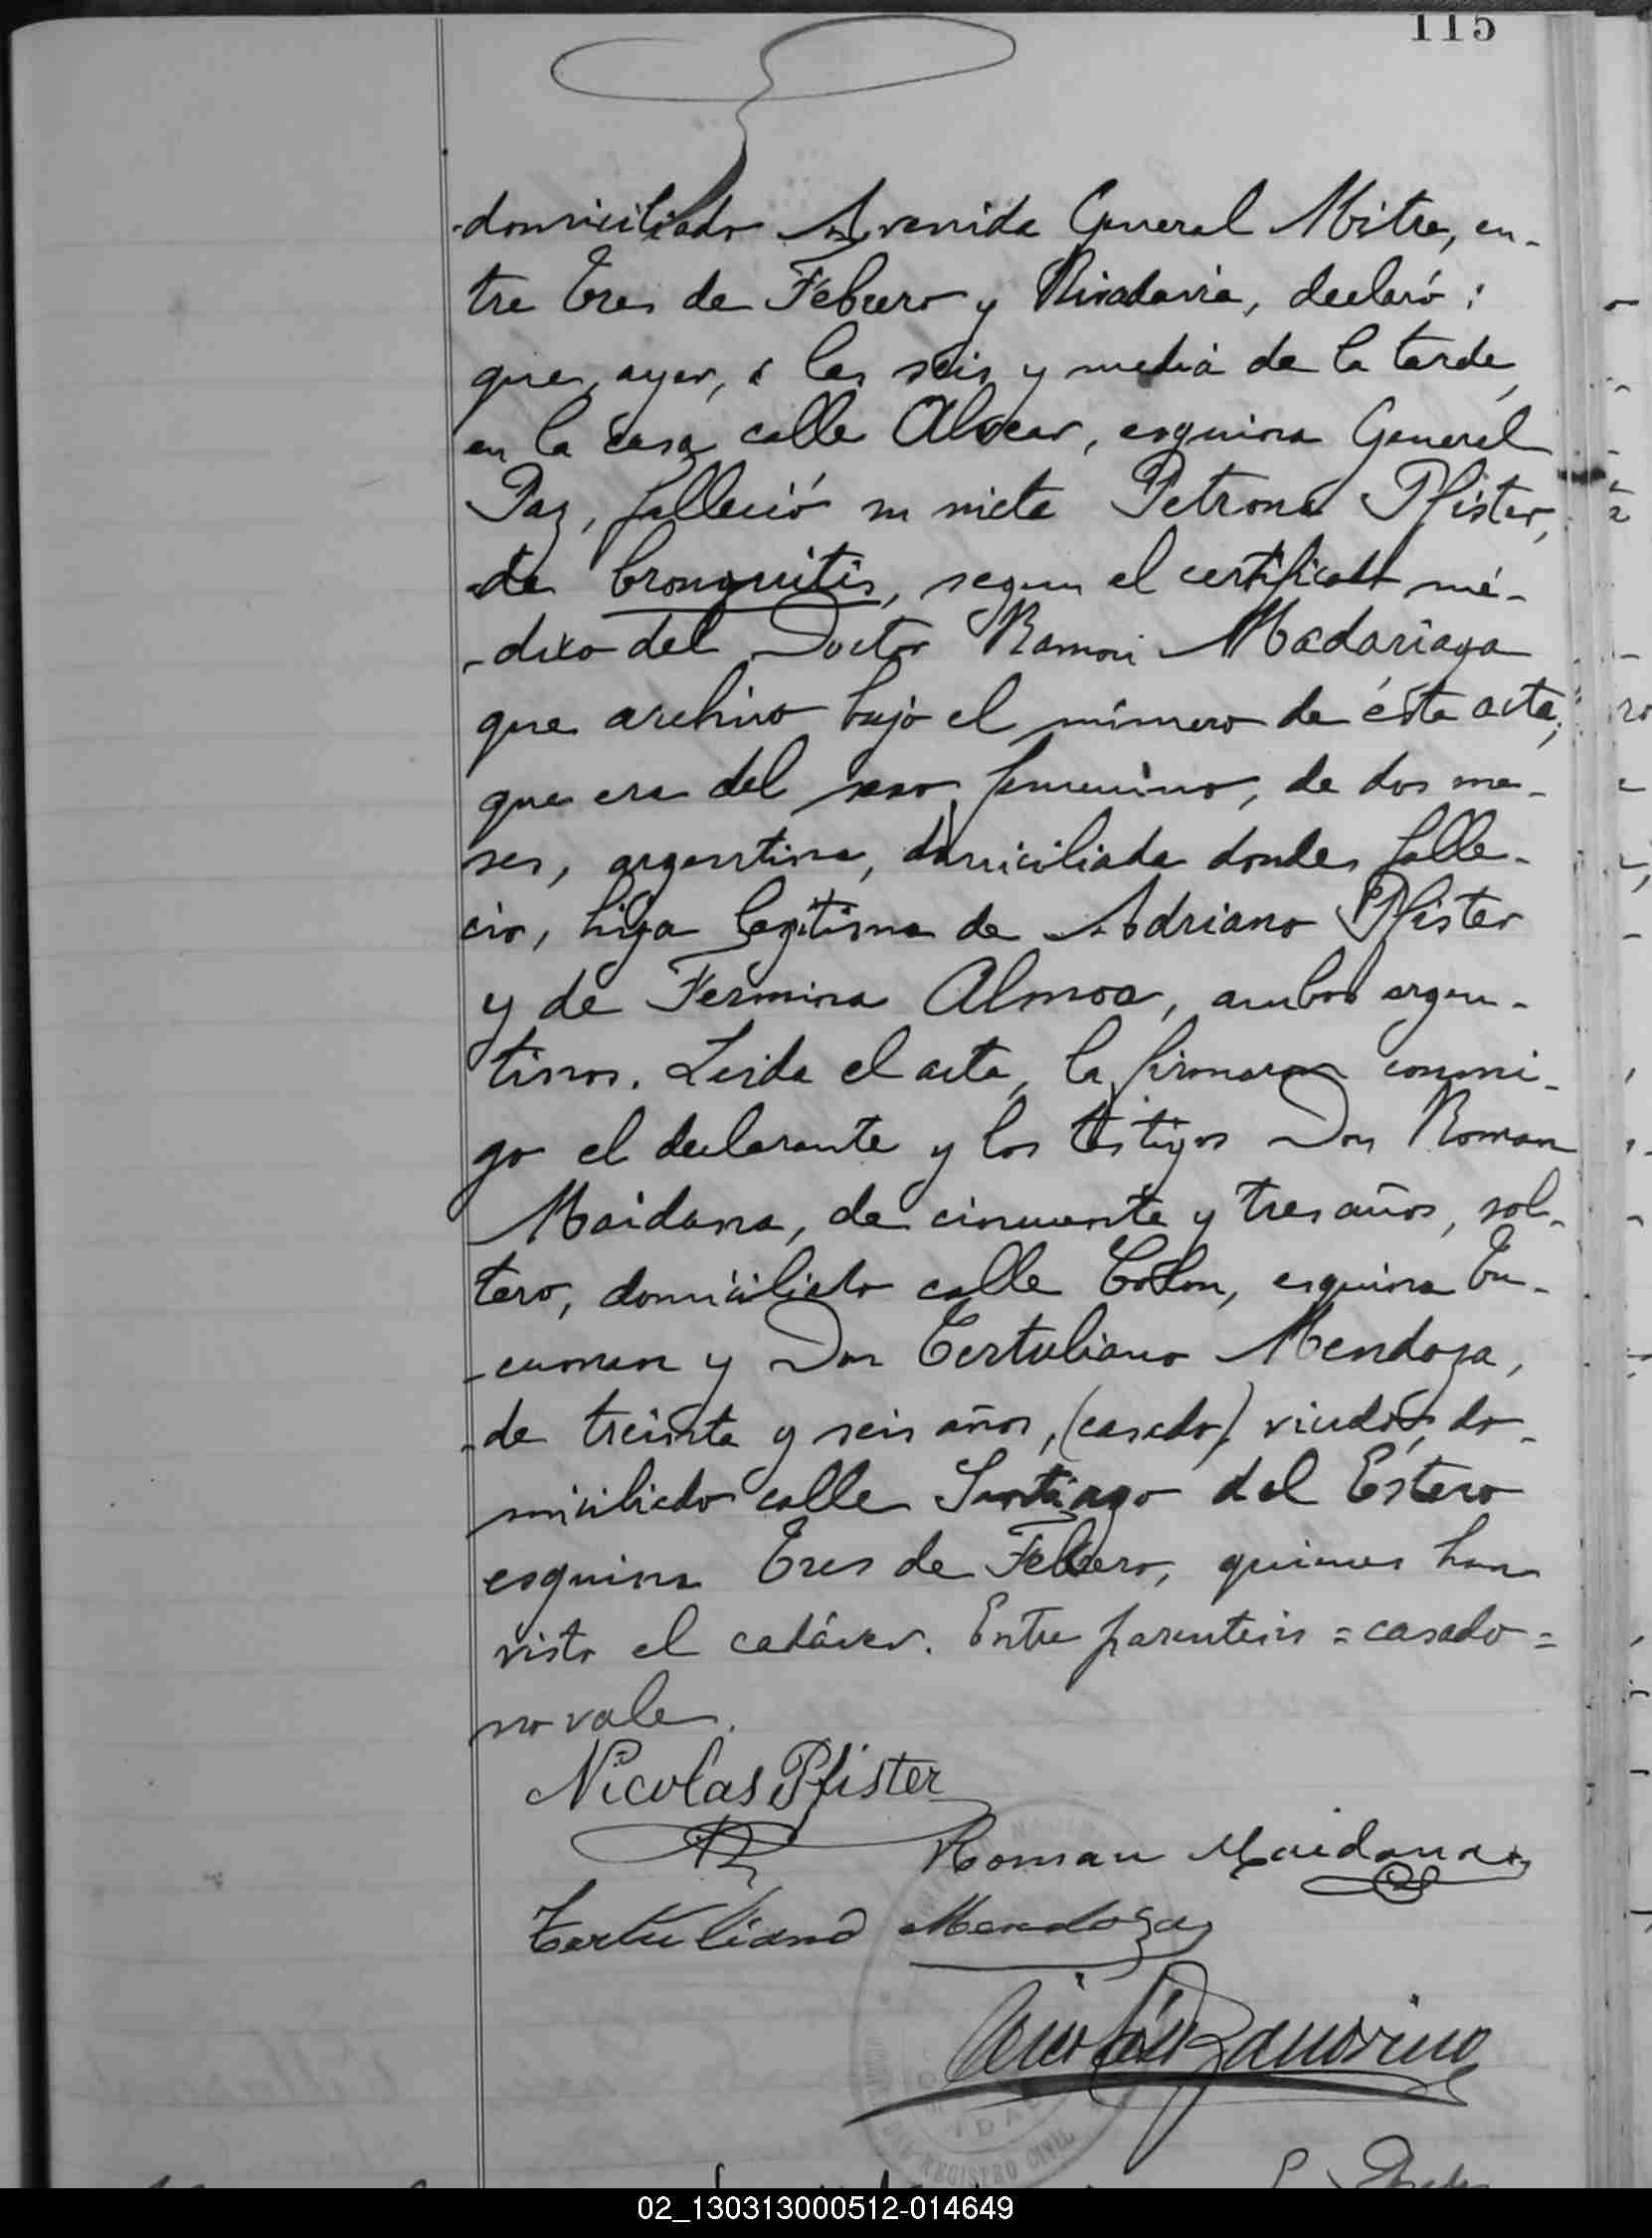 115
domiciliado Avenida General Mitre, en-
tre Tres de Febrero y Rivadavia, declaró:
que, ayer, á las seis y media de la tarde,
en la casa calle Alvear, esquina General
Paz, falleció su nieta Petrona Pfister,
de bronquitis, segun el certificado mé-
-dico del Doctor Ramon Madariaga
que archivo bajo el número de ésta acta;
que era del sexo femenino, de dos me-
ses, argentina, domiciliada donde falle-
ció, hija legitima de Adriano Pfister
y de Fermina Almoa, ambos argen-
tinos. Leida el acta, la firmaron conmi-
go el declarante y los testigos Don Roman
Maidana, de cincuenta y tres años, sol-
tero, domiciliado calle Colon, esquina Tu-
-cuman y Don Tertuliano Mendoza,
de treinta y seis años, (casado) viudo, do-
miciliado calle Santiago del Estero
esquina Tres de Febrero, quienes han
visto el cadáver. Entre parentesis = casado =
no vale.
Nicolas Pfister
Roman Maidana
Tertuliano Mendoza
REGISTRO CIVIL
02_130313000512-014649